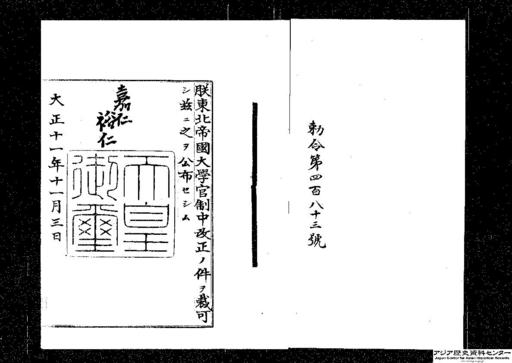 勅令第四百八十三號
朕東北帝國大學官制中改正ノ件ヲ裁可
シ茲ニ之ヲ公布セシム
嘉仁
裕仁
天皇
御璽
大正十一年十一月三日
アジア歴史資料センター
Japan Center for Asian Historical Records